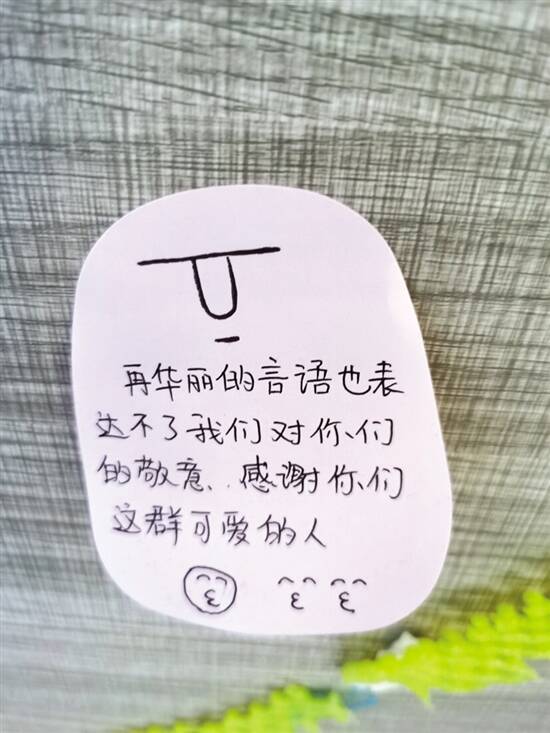 再华丽的言语也表
达不了我们对你们
的敬意、感谢你们
这群可爱的人